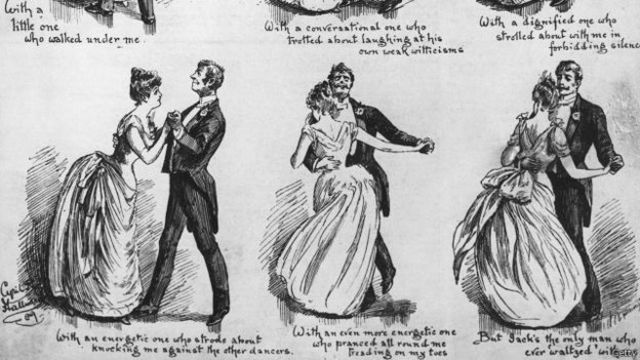 With a
little one
who walked under me.
With a conversational one who
trotted about laughing at his
own weak witticisms
With a dignified one who
strolled about with me in
forbidding silenc
With an energetic one who strode about
knocking me against the other dancers.
With an even more energetic one
who pranced all round me
treading on my toes
But Jack's the only man who
ever waltzed